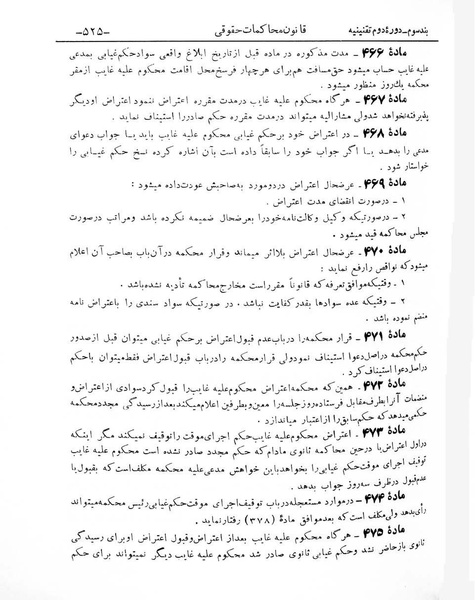 بندسوم_دورهٔ دوم تقنینیه قانون محاکمات حقوقی -۵۲۵-
مادهٔ ۴۶۶ - مدت مذکوره در ماده قبل از تاریخ ابلاغ واقعی سواد حکم غیابی بمدعی
علیه غایب حساب میشود حق مسافت هم برای هر چهار فرسخ محل اقامت محکوم علیه غایب از مقر
محکمه یک روز منظور میشود .
مادهٔ ۴۶۷ - هر گاه محکوم علیه غایب در مدت مقرره اعتراض ننمود اعتراض او دیگر
پذیرفته نخواهد شد ولی مشارالیه میتواند در مدت مقرره حکم صادر را استیناف نماید .
مادهٔ ۴۶۸ - در اعتراض خود بر حکم غیابی محکوم علیه غایب باید یا جواب دعوای
مدعی را بدهد یا اگر جواب خود را سابقاً داده است بآن اشاره کرده نسخ حکم غیابی را
خواستار شود .
مادهٔ ۴۶۹ - عرضحال اعتراض در دو مورد به صاحبش عودت داده میشود :
۱ - در صورت انقضای مدت اعتراض .
۲ - در صورتیکه وکیل وکالت نامه خود را بعرضحال ضمیمه نکرده باشد ومراتب در صورت
مجلس محاکمه قید میشود .
مادهٔ ۴۷۰ - عرضحال اعتراض بلااثر میماند وقرار محکمه در آن باب بصاحب آن اعلام
میشود که نواقص را رفع نماید :
۱ - وقتیکه موافق تعرفه که قانوناً مقرر است مخارج محاکمه تأدیه نشده باشد .
۲ - وقتیکه عده سوادها بقدر کفایت نباشد . در صورتیکه سواد سندی را باعتراض نامه
منضم نموده باشد .
مادهٔ ۴۷۱ - قرار محکمه را در باب عدم قبول اعتراض بر حکم غیابی میتوان قبل از صدور
حکم محکمه در اصل دعوا استیناف نمود ولی قرار محکمه را در باب قبول اعتراض فقط میتوان با حکم
در اصل دعوا استیناف کرد .
مادهٔ ۴۷۲ - همین که محکمه اعتراض محکوم علیه غایب را قبول کرد سوادی از اعتراض و
منضمات آنرا بطرف مقابل فرستاده روز جلسه را معین وبطرفین اعلام میکند بعد از رسیدگی مجدد محکمه
حکمی میدهد که حکم سابق را از اعتبار میاندازد .
مادهٔ ۴۷۳ - اعتراض محکوم علیه غایب حکم اجرای موقت را توقیف نمیکند مگر اینکه
در اول اعتراض یا در حین محاکمه ثانوی مادام که حکم مجدد صادر نشده است محکوم علیه غایب
توقیف اجرای موقت حکم غیابی را بخواهد باین خواهش مدعی علیه محکمه مکلف است که بقبول یا
عدم قبول در ظرف سه روز جواب بدهد .
مادهٔ ۴۷۴ - در موارد مستعجله در باب توقیف اجرای موقت حکم غیابی رئیس محکمه میتواند
رأی بدهد ولی مکلف است که بعد موافق مادهٔ (۳۷۸) رفتار نماید .
مادهٔ ۴۷۵ - هر گاه محکوم علیه غایب بعد از اعتراض وقبول اعتراض او برای رسیدگی
ثانوی باز حاضر نشد وحکم غیابی ثانوی صادر شد محکوم علیه غایب دیگر نمیتواند برای حکم